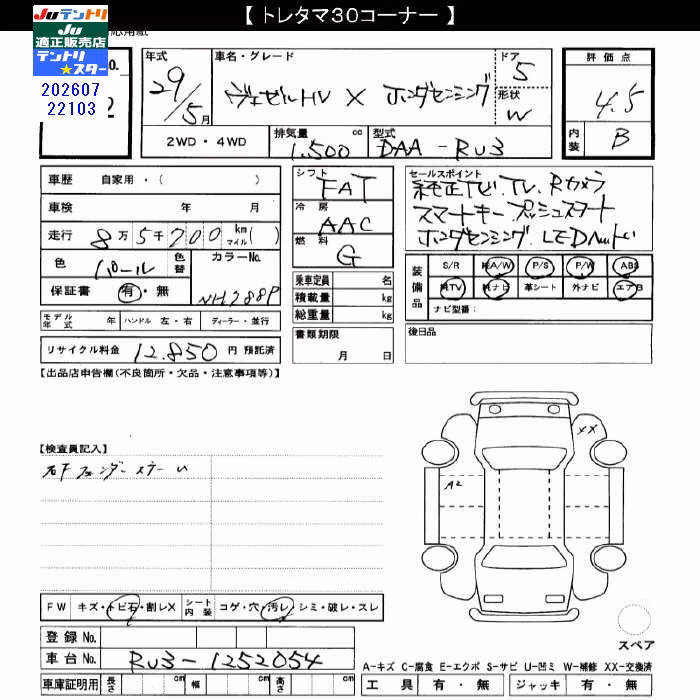 【 トレタマ30コーナー 】
Juテントリ
Ju
適正販売店
テントリ
★スター
応用紙
No.
202607
22103
2
年式
29/5月
車名・グレード
ヴェゼルHV X ホンダセンシング
ドア
5
形状
W
評価点
4.5
内装
B
2WD・4WD
排気量
1.500 cc
型式
DAA-RU3
車歴 自家用・( )
車検 年 月
走行 8万5千200 km マイル( )
色 パール 色替
カラーNo.
NH788P
保証書 有・無
モデル年式 年 ハンドル 左・右 ディーラー・並行
リサイクル料金 12.850 円 預託済
シフト
FAT
冷房
AAC
燃料
G
乗車定員 名
積載量 kg
総重量 kg
書類期限
月 日
セールスポイント
純正ナビ.TV.Rカメラ
スマートキー プッシュスタート
ホンダセンシング.LEDヘッド
装備品
S/R 純A/W P/S P/W ABS
純TV 純ナビ 革シート 外ナビ エアB
ナビ型番:
後日品
【出品店申告欄(不良箇所・欠品・注意事項等)】
【検査員記入】
右Fフェンダーステー
XX
A2
FW キズ・トビ石・割レX シート内装 コゲ・穴・汚レ・シミ・破レ・スレ
登録 No.
車台 No. RU3-1252054
車庫証明用 長さ cm 幅 cm 高さ cm
スペア
A-キズ C-腐食 E-エクボ S-サビ U-凹ミ W-補修 XX-交換済
工具 有・無 ジャッキ 有・無